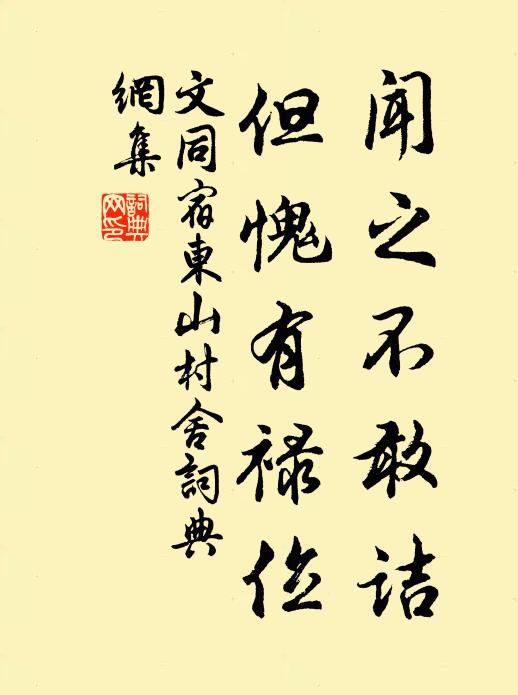 闻之不敢诘
但愧有禄位
文同宿東山村舍詞典
網集
詞典
网印